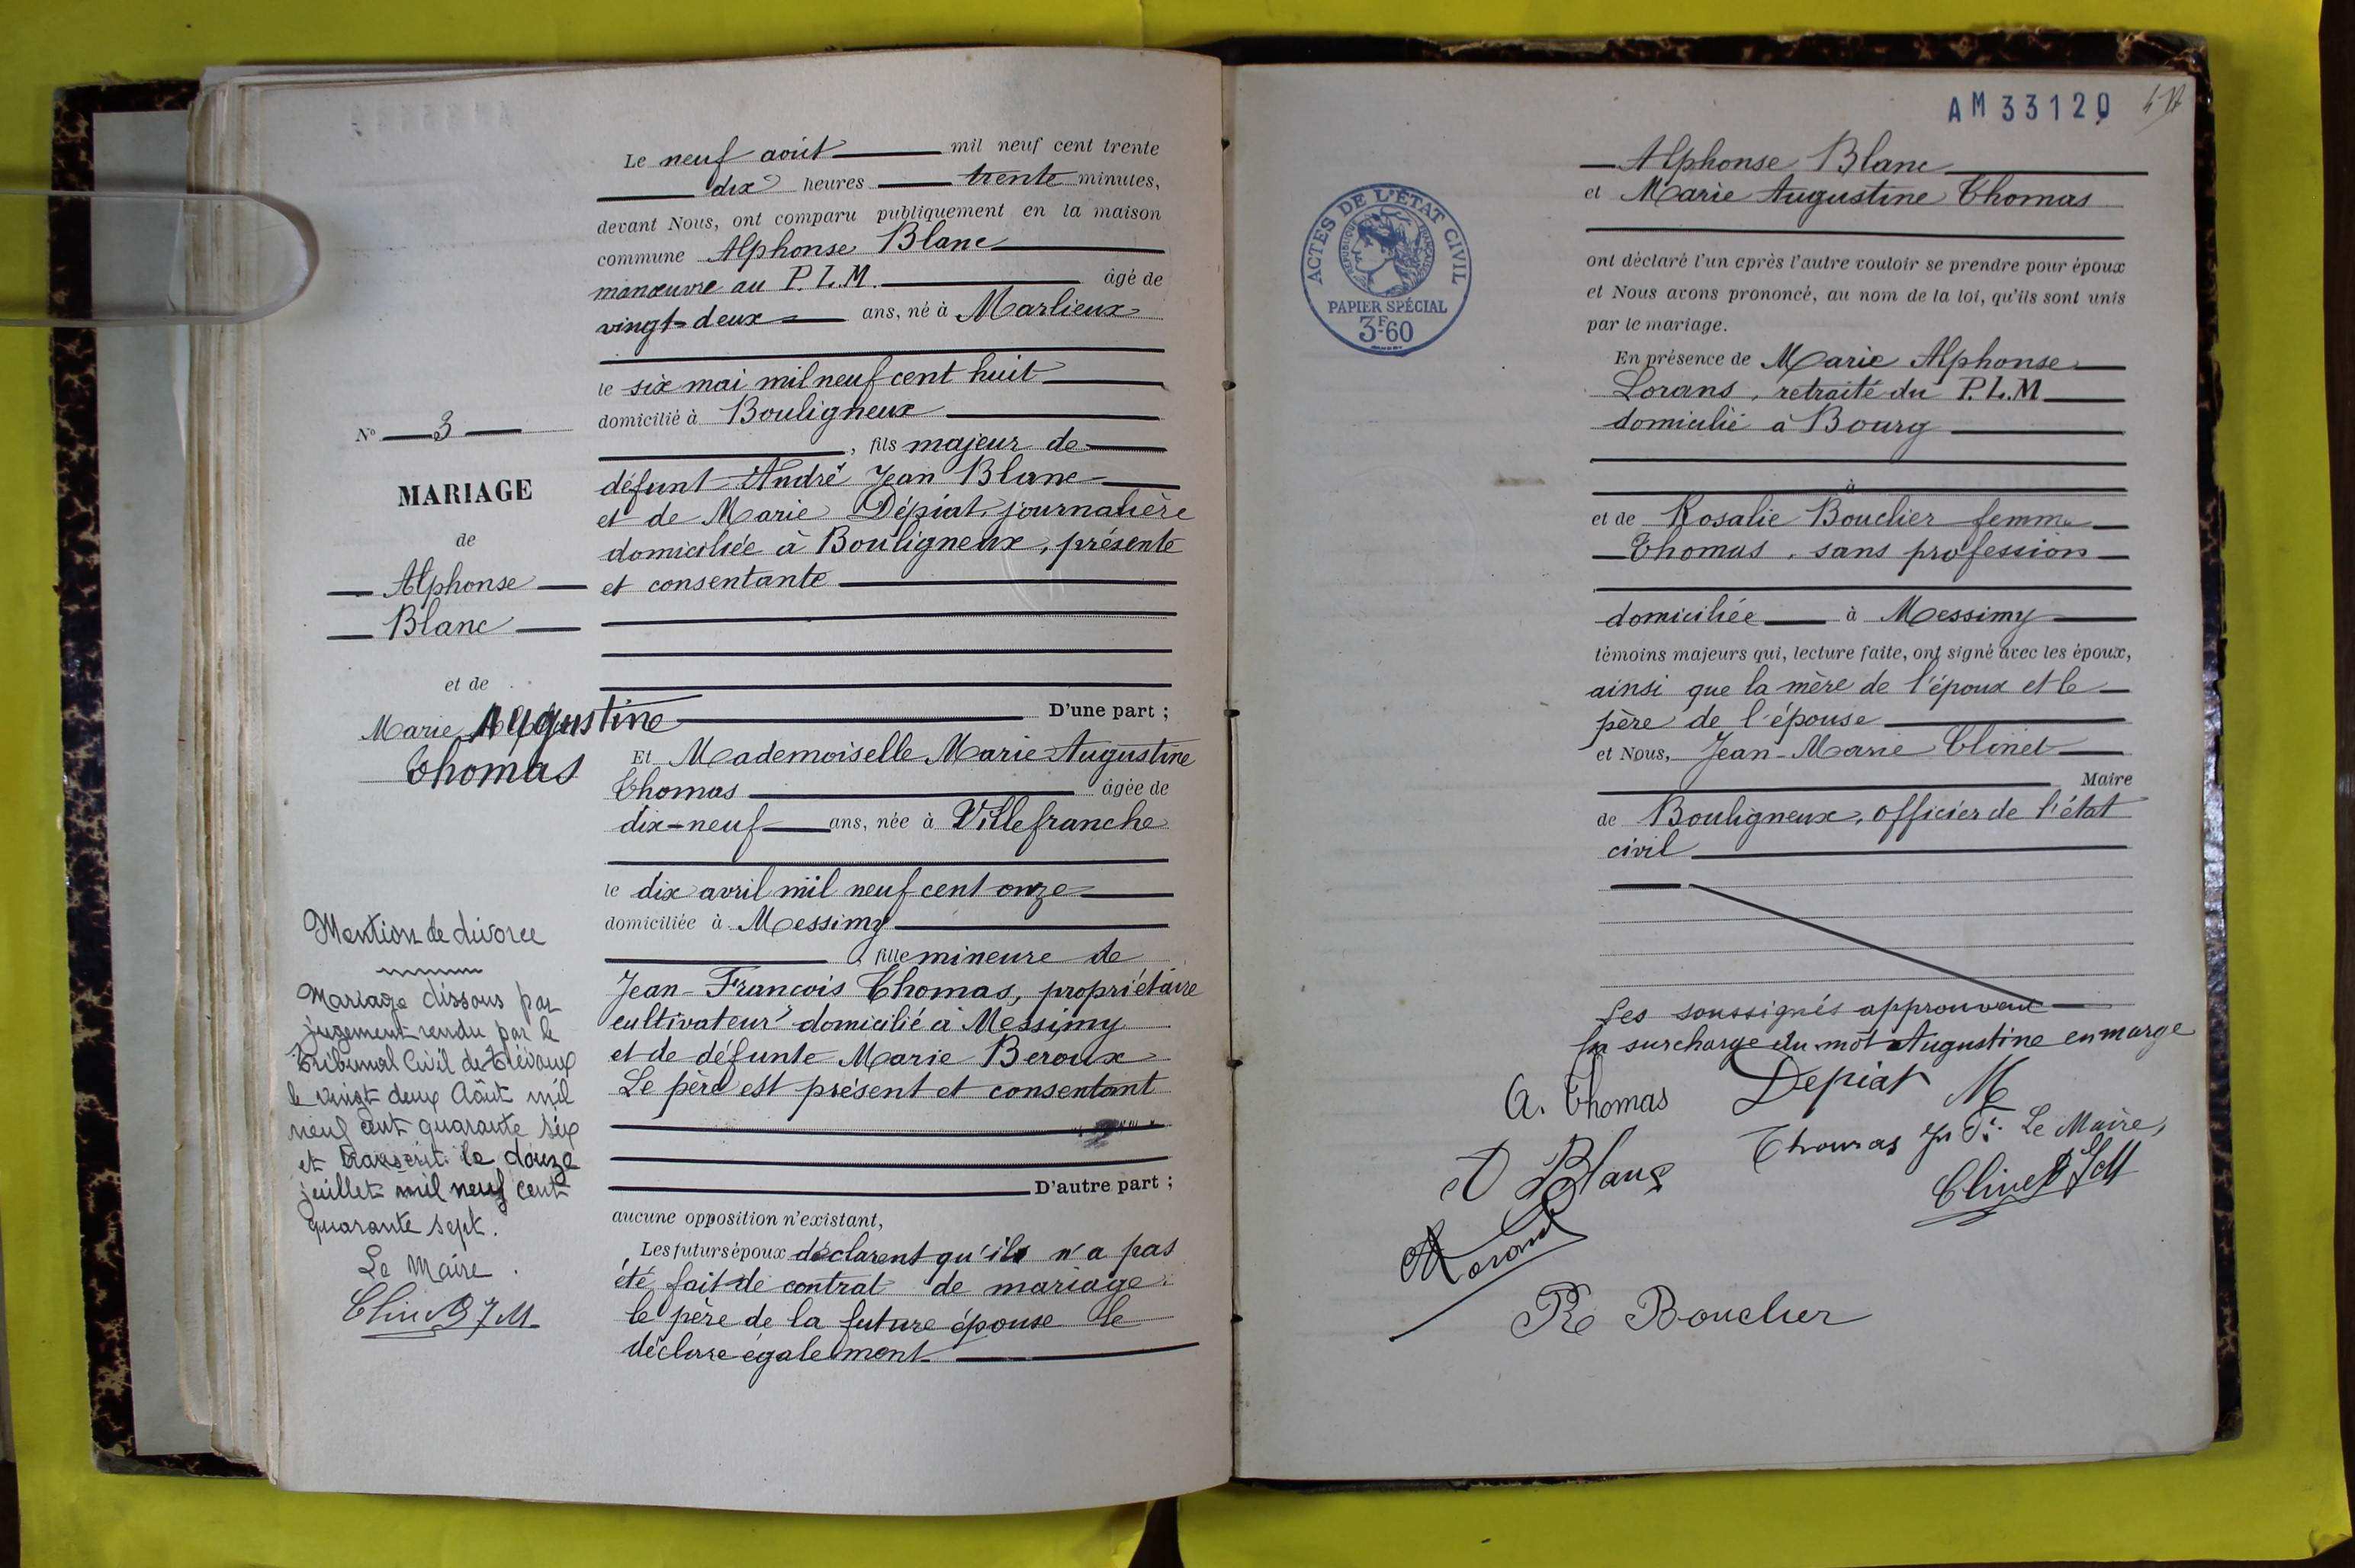 N° 3
MARIAGE
de
Alphonse
Blanc
et de
Marie Augustine
Thomas
Mention de divorce
Mariage dissous par
jugement rendu par le
Tribunal Civil de Trévoux
le vingt deux Août mil
neuf cent quarante six
et transcrit le douze
juillet mil neuf cent
quarante sept.
Le Maire.
Clinet JM
Le neuf août mil neuf cent trente
dix heures trente minutes,
devant Nous, ont comparu publiquement en la maison
commune Alphonse Blanc
manœuvre au P.L.M. âgé de
vingt-deux ans, né à Marlieux
le six mai mil neuf cent huit
domicilié à Bouligneux
, fils majeur de
défunt André Jean Blanc
et de Marie Dépiat, journalière
domiciliée à Bouligneux, présente
et consentante
D'une part ;
Et Mademoiselle Marie Augustine
Thomas âgée de
dix-neuf ans, née à Villefranche
le dix avril mil neuf cent onze
domiciliée à Messimy
, fille mineure de
Jean-François Thomas, propriétaire
cultivateur domicilié à Messimy
et de défunte Marie Beroux
Le père est présent et consentant
D'autre part ;
aucune opposition n'existant,
Les futurs époux déclarent qu'il n'a pas
été fait de contrat de mariage
le père de la future épouse le
déclare également
AM 33120
Alphonse Blanc
et Marie Augustine Thomas
ACTES DE L'ÉTAT CIVIL
RÉPUBLIQUE FRANÇAISE
PAPIER SPÉCIAL
3F60
ont déclaré l'un après l'autre vouloir se prendre pour époux
et Nous avons prononcé, au nom de la loi, qu'ils sont unis
par le mariage.
En présence de Marie Alphonse
Lorans, retraité du P.L.M
domicilié à Bourg
à
et de Rosalie Bouclier femme
Thomas, sans profession
domiciliée à Messimy
témoins majeurs qui, lecture faite, ont signé avec les époux,
ainsi que la mère de l'époux et le
père de l'épouse
et Nous, Jean-Marie Clinet
Maire
de Bouligneux, officier de l'état
civil
Les soussignés approuvent
la surcharge du mot Augustine en marge
A. Thomas Depiat M
A Blanc Thomas Le Maire,
Clinet JM
Lorans
Re Bouclier